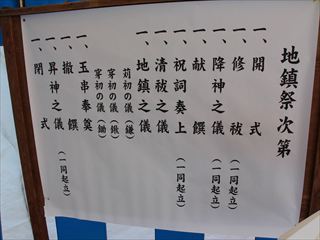 地鎮祭次第
一、開式
一、修祓（一同起立）
一、降神之儀（一同起立）
一、献饌
一、祝詞奏上（一同起立）
一、清祓之儀
一、地鎮之儀
苅初の儀（鎌）
穿初の儀（鍬）
穿初の儀（鋤）
一、玉串奉奠
一、撤饌
一、昇神之儀（一同起立）
一、閉式